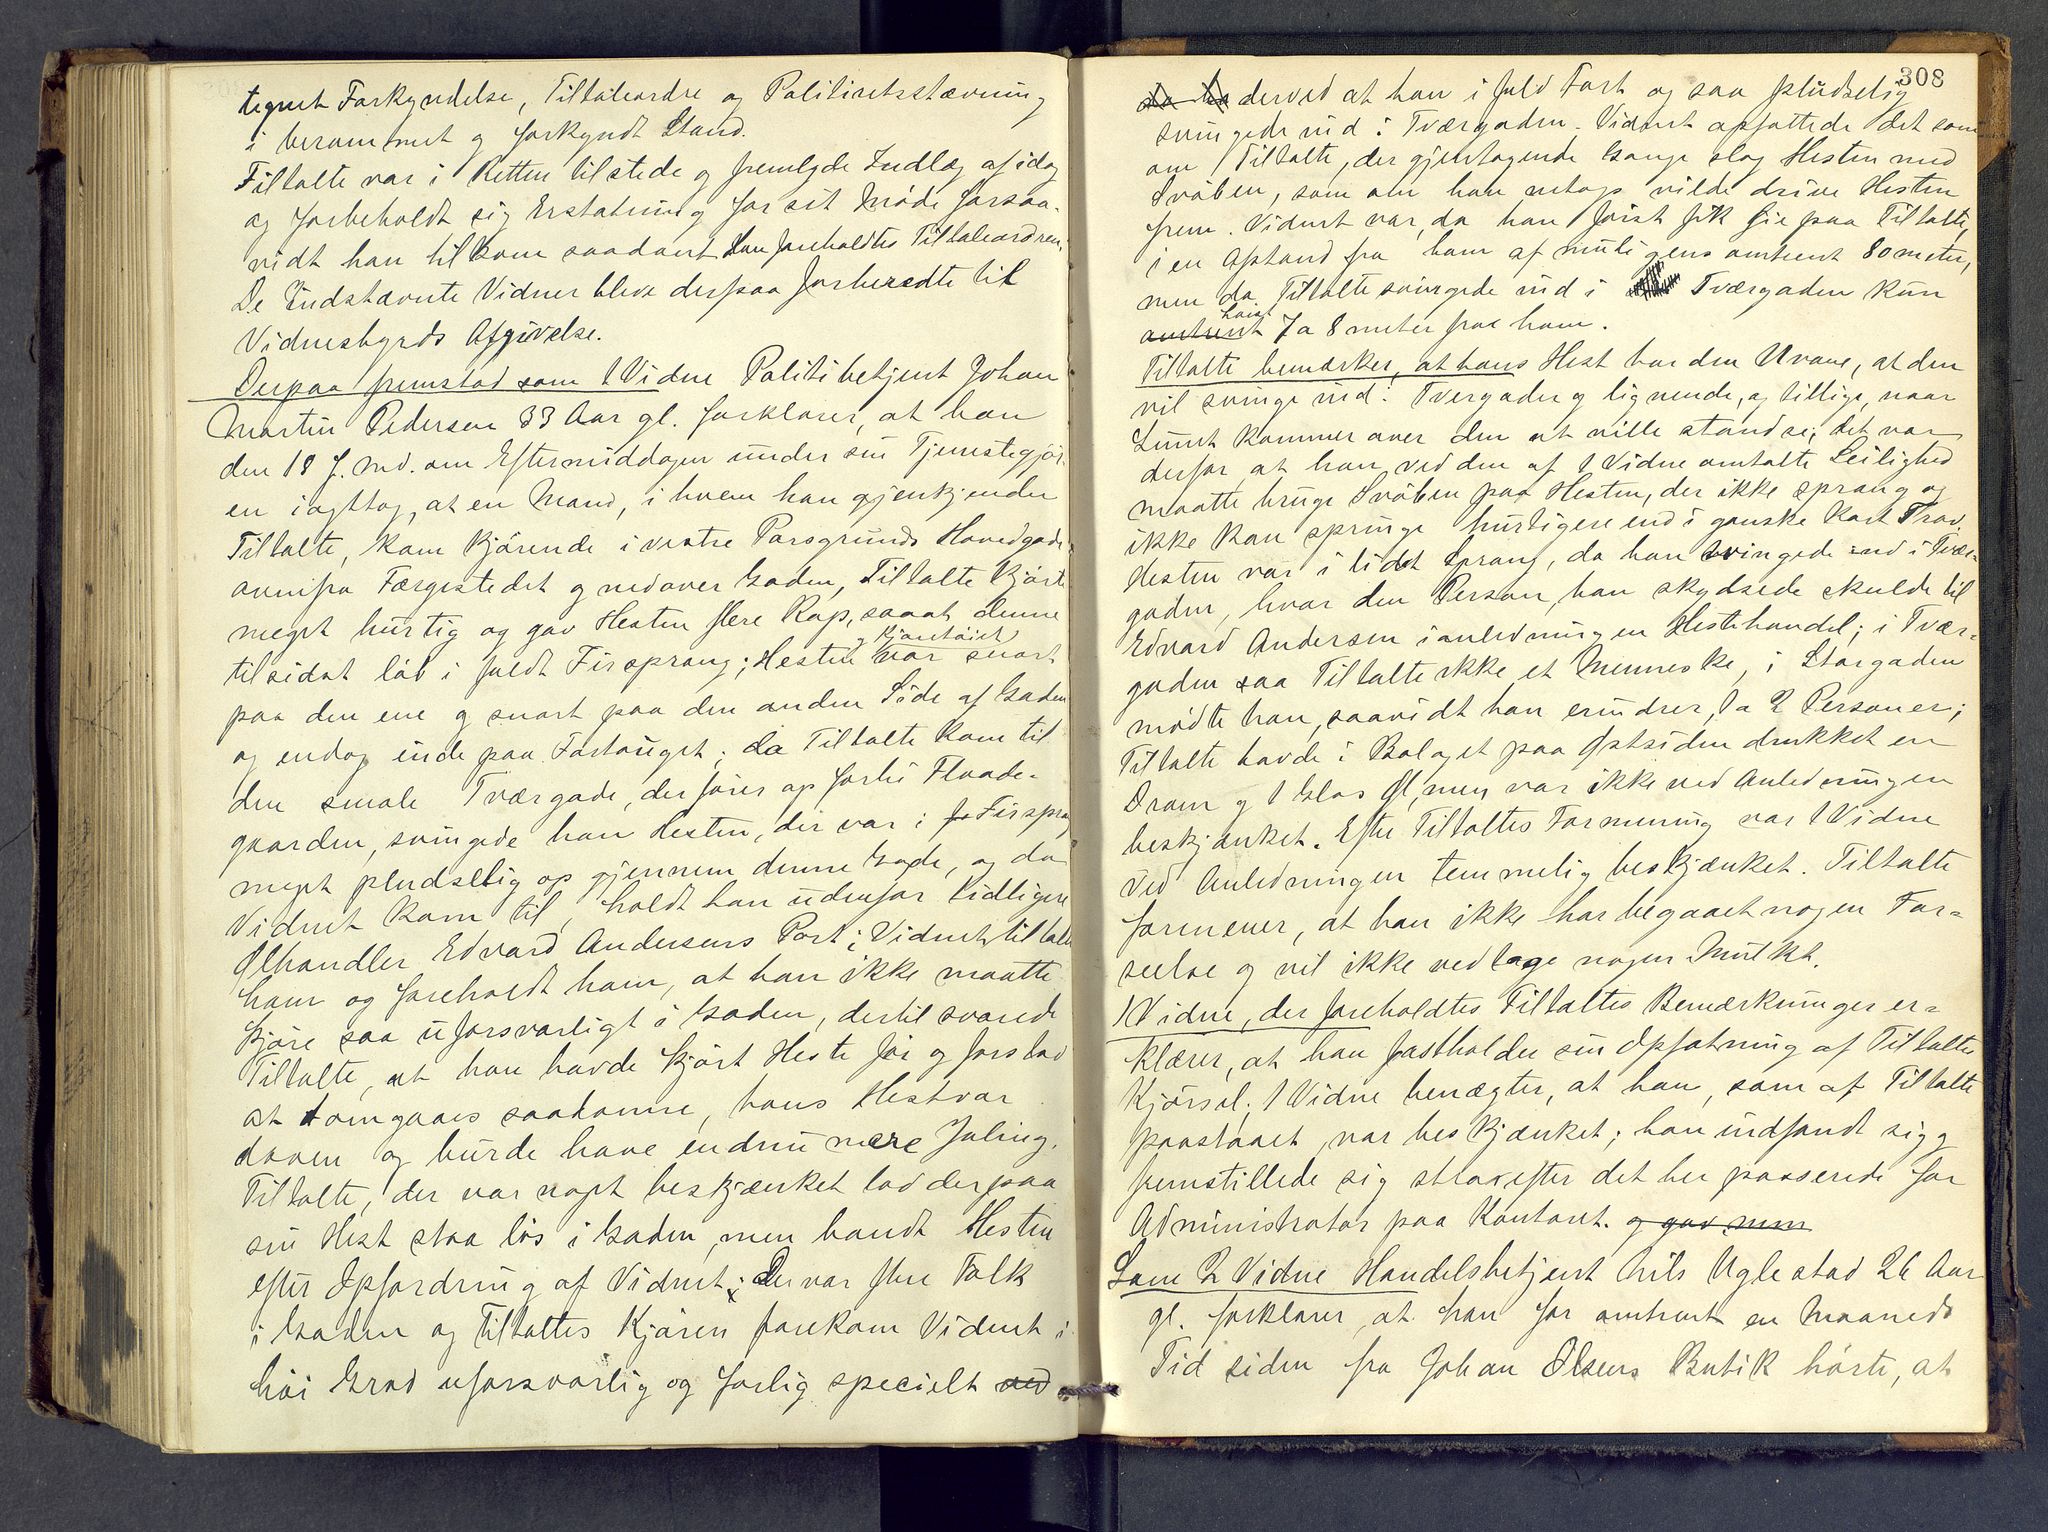 tegnet Forkyndelse, Tiltaleordre og Politiretsstævning
i berammet og forkyndt Stand.
Tiltalte var i Retten tilstede og fremlagde Indlæg af idag
og forbeholdt sig Erstatning for sit Møde forsaa-
vidt han tilkom saadant. Han foreholdtes Tiltaleordren.
De Indstævnte Vidner bleve derpaa forberedte til
Vidnesbyrds Afgivelse.
Derpaa fremstod som 1 Vidne Politibetjent Johan
Martin Pedersen 33 Aar gl. forklarer, at han
den 18 f. Md. om Eftermiddagen under sin Tjenestegjør-
en iagttog, at en Mand, i hvem han gjenkjender
Tiltalte, kom kjørende i vestre Porsgrunds Hovedgade
ovenfra Færgestedet og nedover Gaden, Tiltalte kjørte
meget hurtig og gav Hesten flere Rap, saaat denne
tilsidst løb i fuldt Firsprang; Hesten og Kjøretøiet var snart
paa den ene og snart paa den anden Side af Gaden
og endog inde paa Fortouget; da Tiltalte kom til
den smale Tværgade, der fører op forbi Flaade-
gaarden, svingede han Hesten, der var i fu Firsprang
meget pludselig op gjennem denne Gade, og da
Vidnet kom til, holdt han udenfor tidligere
Ølhandler Edvard Andersens Port; Vidnet tiltalte
ham og foreholdt ham, at han ikke maatte
kjøre saa uforsvarligt i Gaden, dertil svarede
Tiltalte, at han havde kjørt Heste før og forstod
at omgaaes saadanne, hans Hest var
doven og burde have endnu mere Juling.
Tiltalte, der var noget beskjænket lod derpaa
sin Hest staa løs i Gaden, men bandt Hesten
efter Opfordring af Vidnet; Der var flere Folk
i Gaden og Tiltaltes Kjøren forekom Vidnet i
høi Grad uforsvarlig og farlig specielt ved
308
da ha derved at han i fuld Fart og saa pludselig
svingede ind i Tværgaden. Vidnet opfattede det som
om Tiltalte, der gjentagende Gange slog Hesten med
Svøben, som om han netop vilde drive Hesten
frem. Vidnet var, da han først fik Øie paa Tiltalte,
i en Afstand fra ham af muligens omtrent 80 meter,
men da Tiltalte svingede ind i Tværgaden kun
omtrent høist 7 a 8 meter fra ham.
Tiltalte bemærker, at hans Hest har den Uvane, at den
vil svinge ind i Tvergader og lignende, og tillige, naar
Lunet kommer over den at ville standse; det var
derfor, at han ved den af 1 Vidne omtalte Leilighed
maatte bruge Svøben paa Hesten, der ikke sprang og
ikke kan springe hurtigere end i ganske kort Trav.
Hesten var i lidt Sprang, da han svingede ind i Tvær-
gaden, hvor den Person, han skydsede skulde til
Edvard Andersen i anledning en Hestehandel; i Tvær-
gaden saa Tiltalte ikke et Menneske, i Storgaden
mødte han, saavidt han erindrer, 1 a 2 Personer;
Tiltalte havde i Bolaget paa Østsiden drukket en
Dram og 1 Glas Øl, men var ikke ved Anledningen
beskjænket. Efter Tiltaltes Formening var 1 Vidne
ved Anledningen temmelig beskjænket. Tiltalte
formener, at han ikke har begaaet nogen For-
seelse og vil ikke vedtage nogen Mulkt.
1 Vidne, der foreholdtes Tiltaltes Bemærkninger er-
klærer, at han fastholder sin Opfatning af Tiltaltes
Kjørsel. 1 Vidne benægter, at han, som af Tiltalte
paastaaet, var beskjænket; han indfandt sig og
fremstillede sig strax efter det her passerede for
Administrator paa Kontoret. og gav men
Som 2 Vidne Handelsbetjent Nils Uglestad 26 Aar
gl. forklarer, at han for omtrent en Maaneds
Tid siden fra Johan Olsens Butik hørte, at